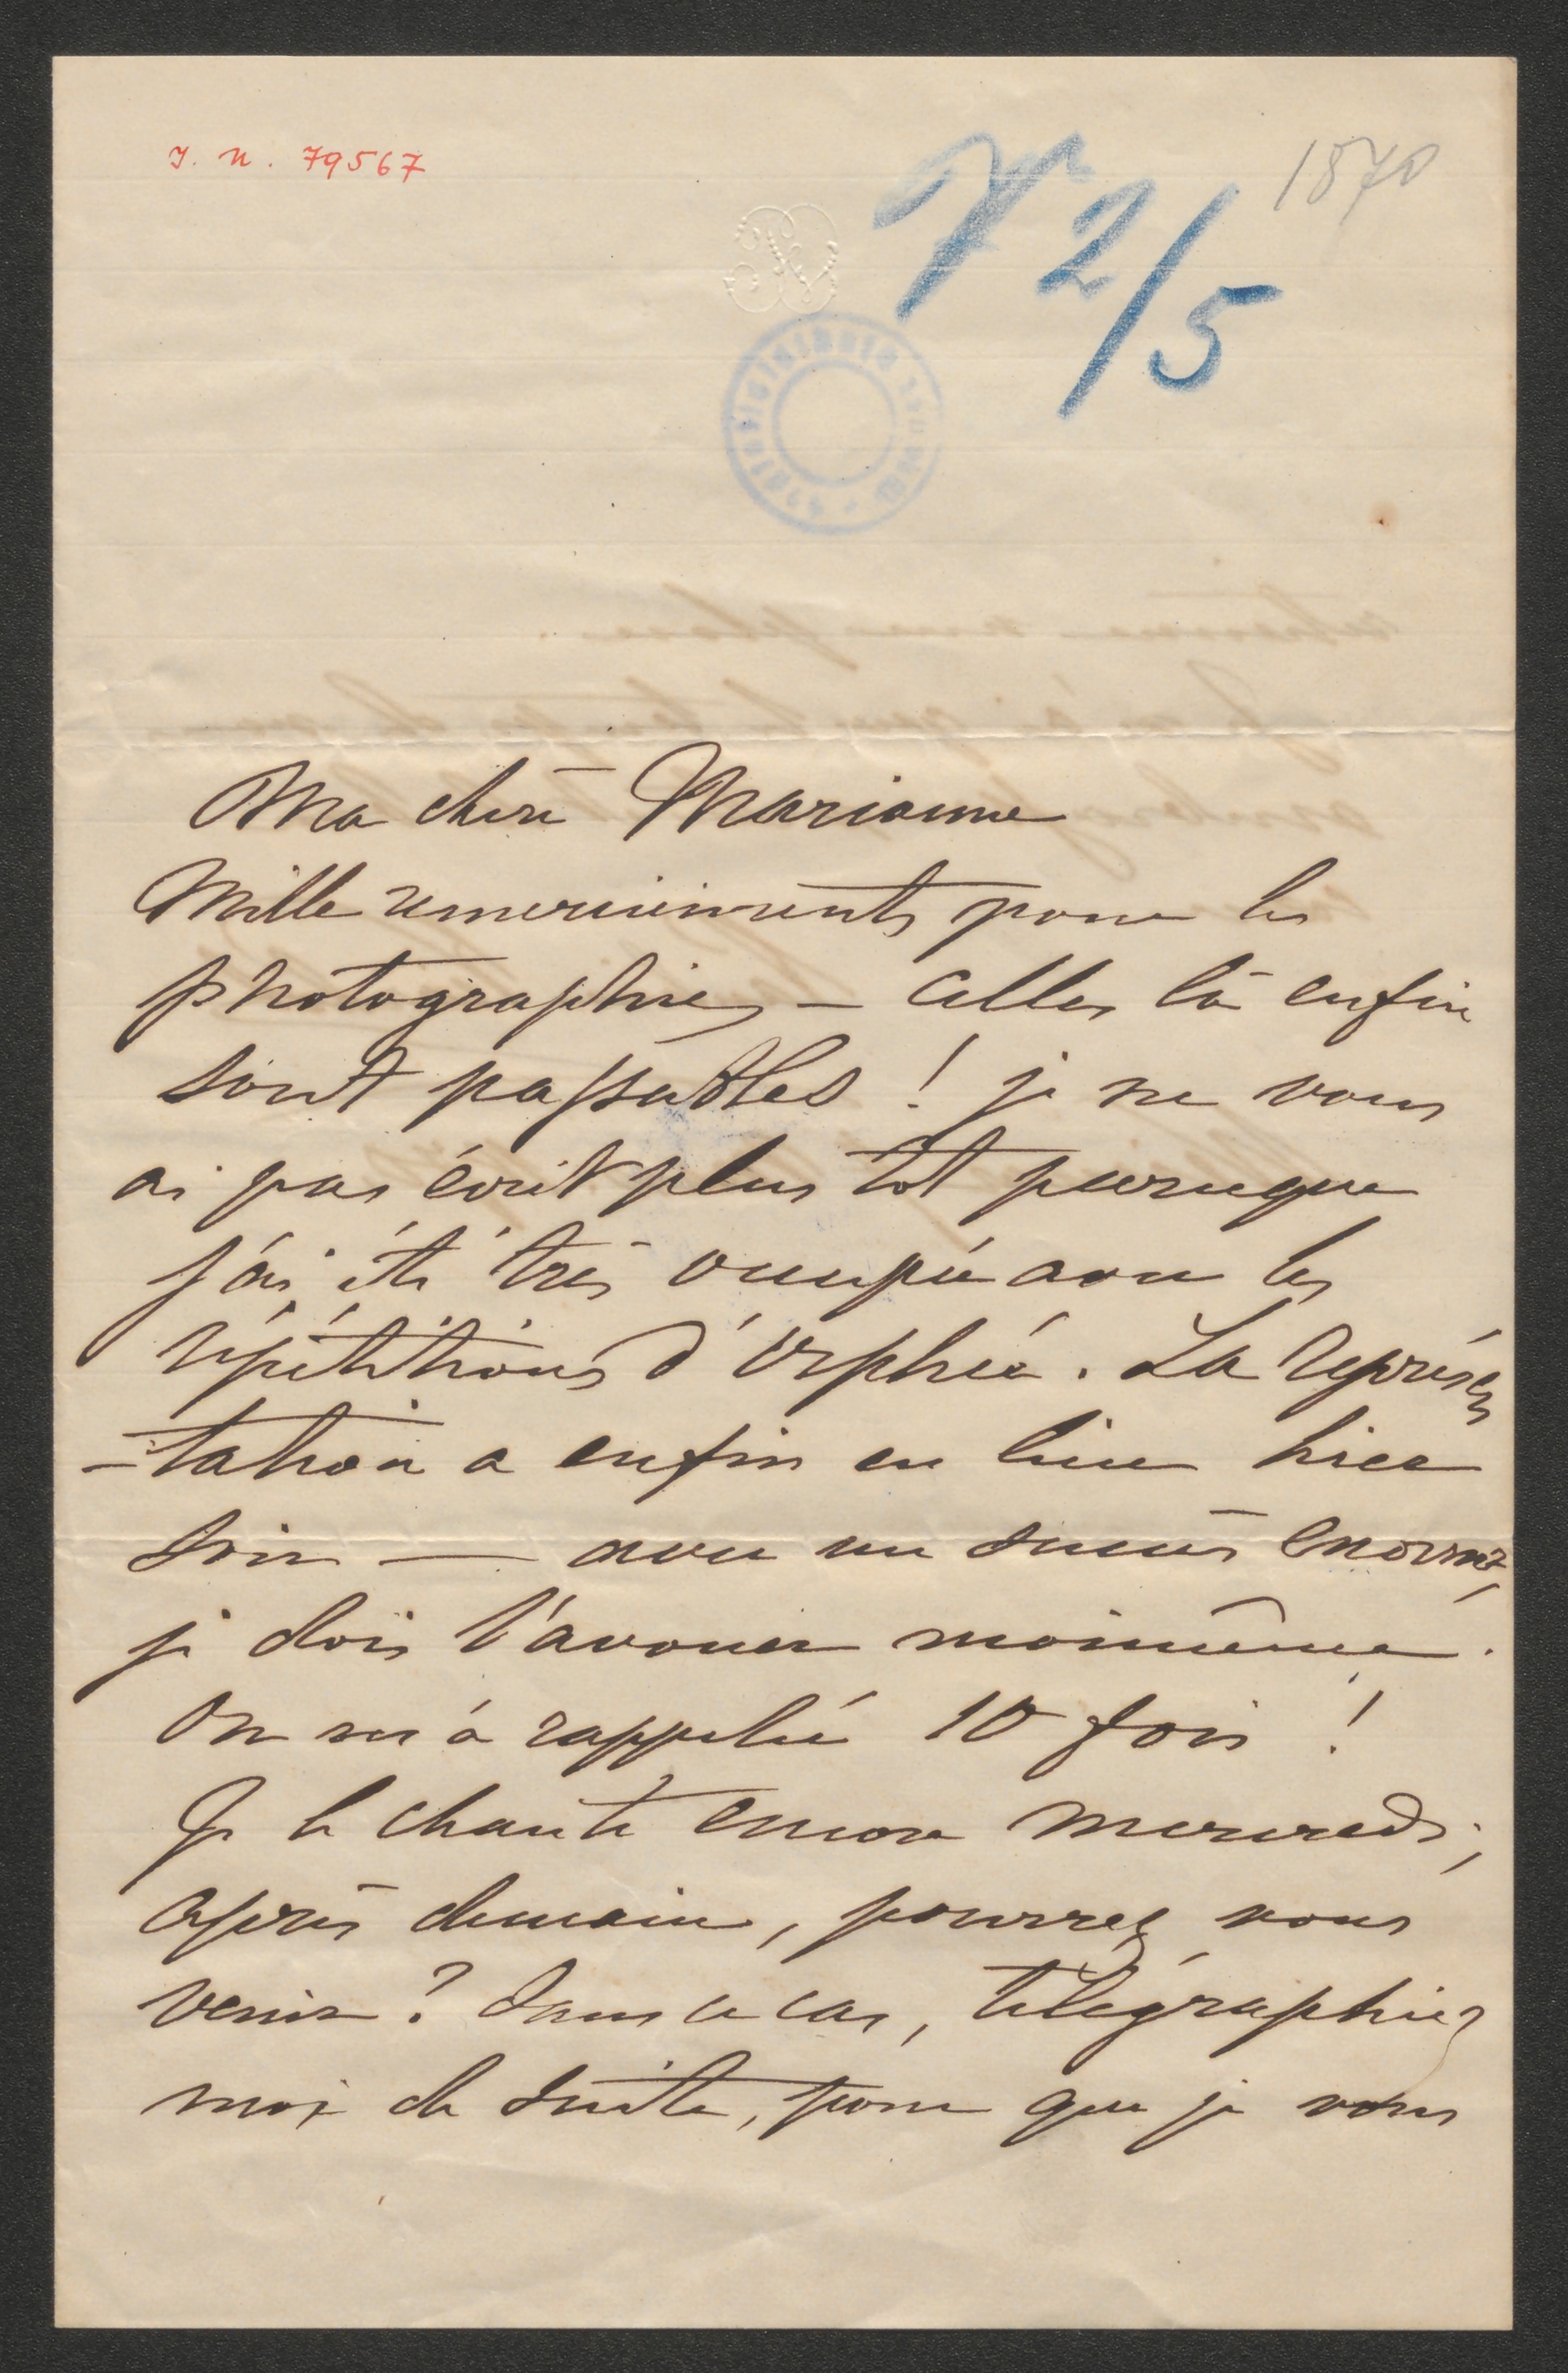 J. N. 79567
1870
V 2/5
Ma chère Marianne
Mille remerciements pour les
photographies — celles là enfin
sont passables ! je ne vous
ai pas écrit plus tôt parceque
j'ai été très occupée avec les
répétitions d'Orphée. La représen
-tation a enfin eu lieu hier
soir — avec un succès enorme,
je dois l'avouer moimême.
On m'a rappelée 10 fois !
Je le chante encore mercredi,
après demain, pourrez vous
venir ? Dans ce cas, télégraphiez
moi de suite, pour que je vous